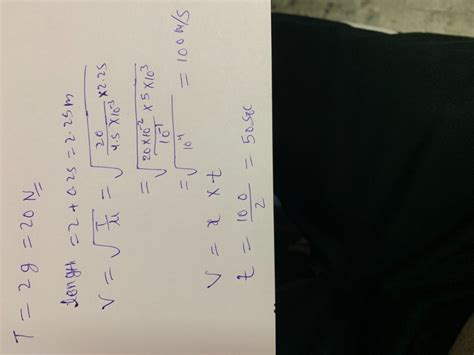 T = 2g = 20N
length = 2 + 0.25 = 2.25m
V = √(T/μ) = √(20/(4.5 × 10⁻³) × 2.25)
= √((20 × 10⁻² × 5 × 10³)/10⁻¹)
= √10⁴ = 100 m/s
V = x × t
t = 100/2 = 50 sec